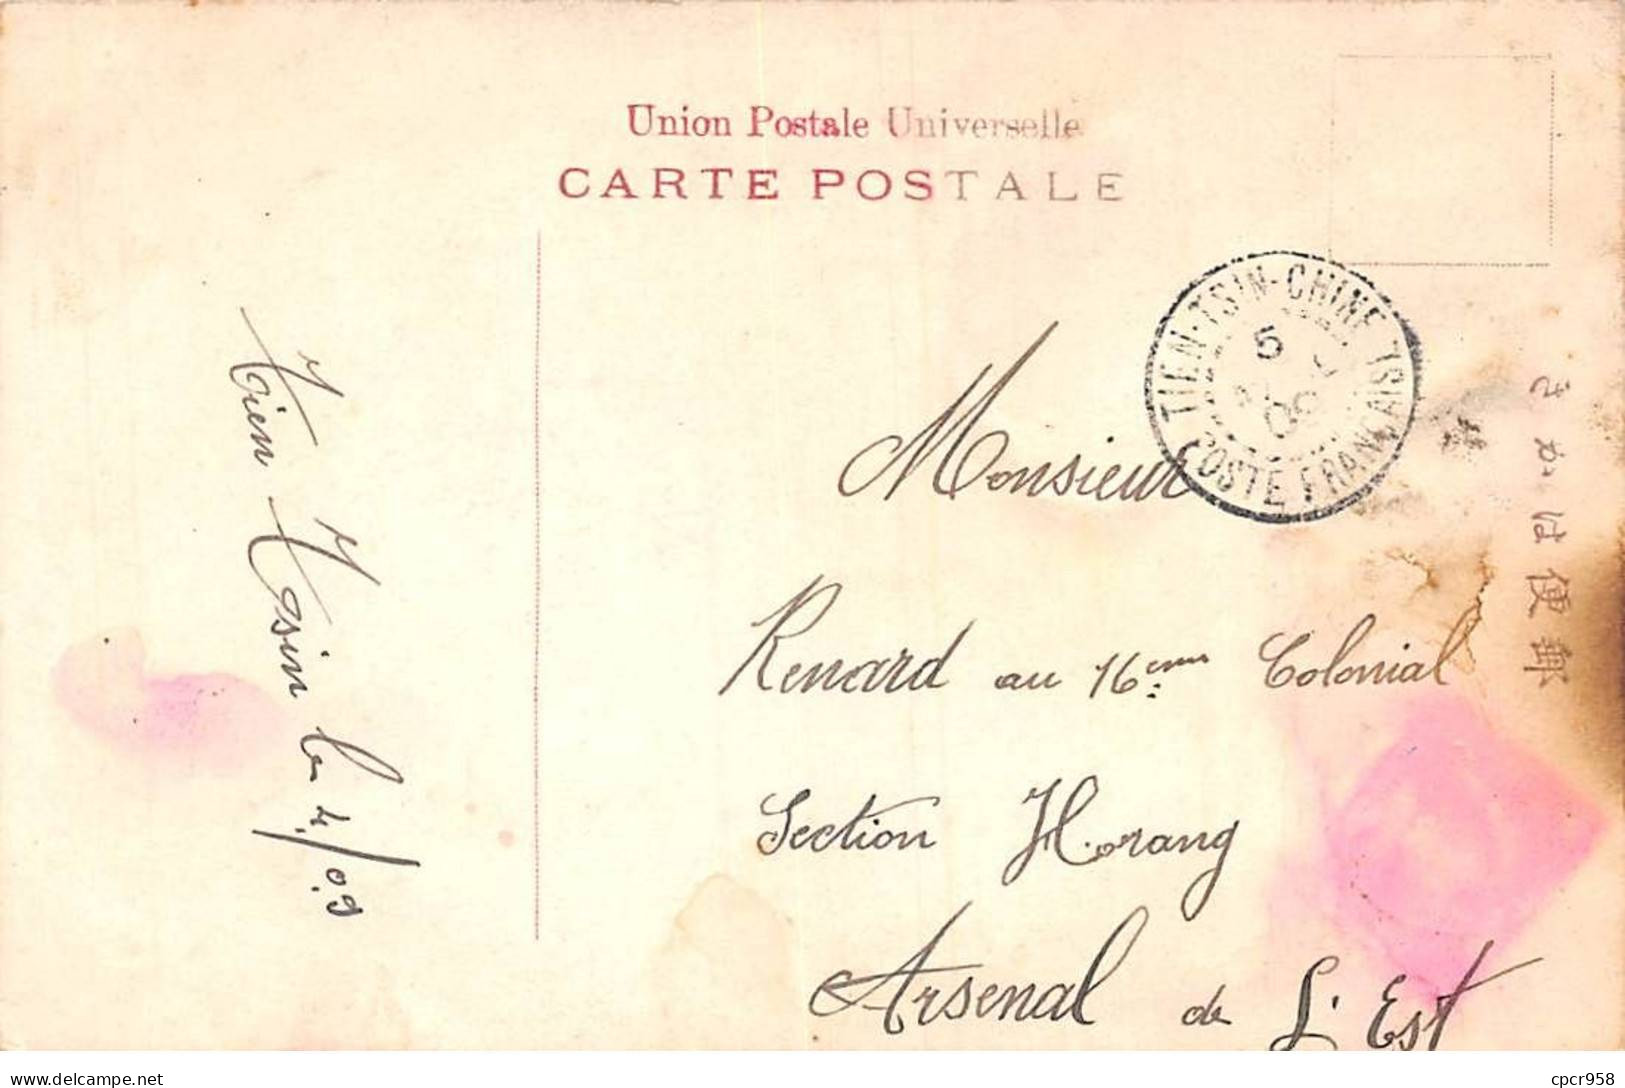 Union Postale Universelle
CARTE POSTALE
TIEN-TSIN-CHINE
POSTE FRANÇAISE
5
09
きかは便郵
Monsieur
Renard au 16ème Colonial
Section Horang
Arsenal de L'Est
Tien Tsin le 4/09
delcampe.net
cpcr958